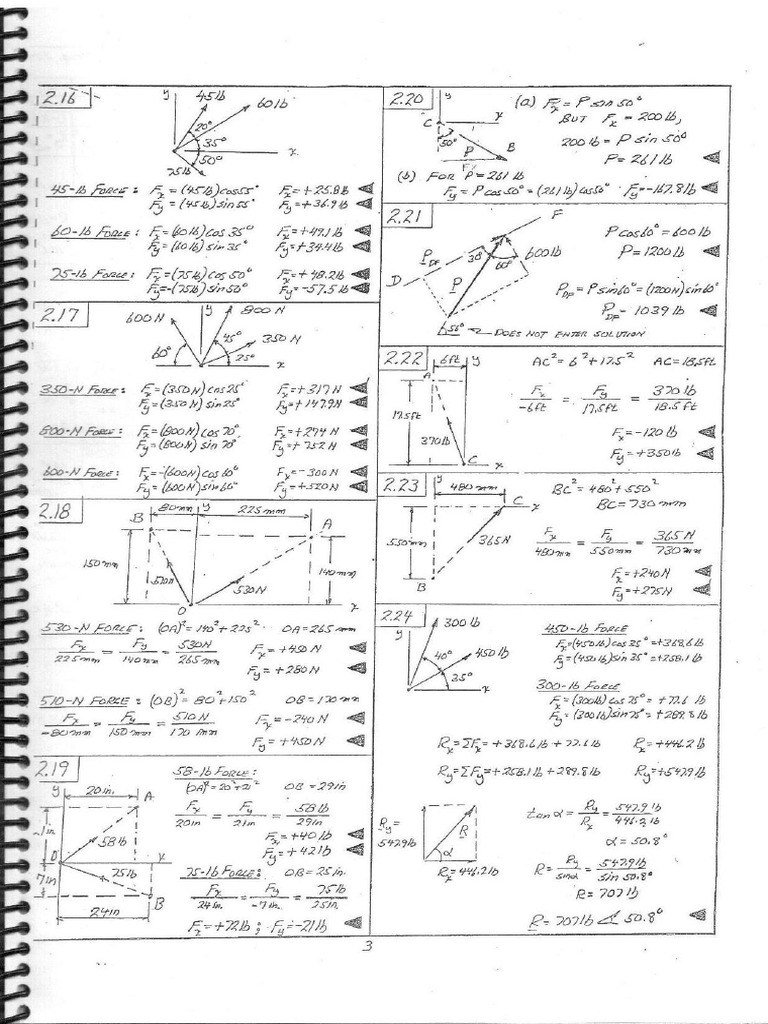 2.16
y
45 lb
60 lb
20°
35°
50°
x
75 lb
45-lb FORCE: Fx = (45 lb) cos 55° Fx = +25.8 lb
Fy = (45 lb) sin 55° Fy = +36.9 lb
60-lb FORCE: Fx = (60 lb) cos 35° Fx = +49.1 lb
Fy = (60 lb) sin 35° Fy = +34.4 lb
75-lb FORCE: Fx = (75 lb) cos 50° Fx = +48.2 lb
Fy = -(75 lb) sin 50° Fy = -57.5 lb
2.17
y
600 N
800 N
350 N
60°
45°
25°
x
350-N FORCE: Fx = (350 N) cos 25° Fx = +317 N
Fy = (350 N) sin 25° Fy = +147.9 N
800-N FORCE: Fx = (800 N) cos 70° Fx = +274 N
Fy = (800 N) sin 70° Fy = +752 N
600-N FORCE: Fx = -(600 N) cos 60° Fx = -300 N
Fy = (600 N) sin 60° Fy = +520 N
2.18
80 mm
y
225 mm
B
A
150 mm
140 mm
510 N
530 N
O
x
530-N FORCE: (OA)² = 140² + 225² OA = 265 mm
Fx/225 mm = Fy/140 mm = 530 N/265 mm Fx = +450 N
Fy = +280 N
510-N FORCE: (OB)² = 80² + 150² OB = 170 mm
Fx/-80 mm = Fy/150 mm = 510 N/170 mm Fx = -240 N
Fy = +450 N
2.19
y
20 in.
A
58 lb
O
x
75 lb
7 in
B
24 in
58-lb FORCE:
(OA)² = 20² + 21² OA = 29 in
Fx/20 in = Fy/21 in = 58 lb/29 in
Fx = +40 lb
Fy = +42 lb
75-lb FORCE: OB = 25 in.
Fx/24 in. = Fy/-7 in. = 75 lb/25 in.
Fx = +72 lb ; Fy = -21 lb
2.20
y
C
x
50°
P
B
Fx
(a) Fx = P sin 50°
BUT Fx = 200 lb,
200 lb = P sin 50°
P = 261 lb
(b) FOR P = 261 lb
Fy = P cos 50° = (261 lb) cos 50° Fy = -167.8 lb
2.21
F
30°
60°
600 lb
P
D
P cos 60° = 600 lb
P = 1200 lb
P_DF = P sin 60° = (1200 N) sin 60°
P_DF = 1039 lb
DOES NOT ENTER SOLUTION
2.22
6 ft
y
A
17.5 ft
370 lb
C
x
AC² = 6² + 17.5² AC = 18.5 ft
Fx/-6 ft = Fy/17.5 ft = 370 lb/18.5 ft
Fx = -120 lb
Fy = +350 lb
2.23
y
480 mm
C
x
550 mm
365 N
B
BC² = 480² + 550²
BC = 730 mm
Fx/480 mm = Fy/550 mm = 365 N/730 mm
Fx = +240 N
Fy = +275 N
2.24
y
300 lb
450 lb
40°
35°
x
450-lb FORCE
Fx = (450 lb) cos 35° = +368.6 lb
Fy = (450 lb) sin 35° = +258.1 lb
300-lb FORCE
Fx = (300 lb) cos 75° = +77.6 lb
Fy = (300 lb) sin 75° = +289.8 lb
Rx = ΣFx = +368.6 lb + 77.6 lb Rx = +446.2 lb
Ry = ΣFy = +258.1 lb + 289.8 lb Ry = +547.9 lb
Ry = 547.9 lb
R
α
Rx = 446.2 lb
tan α = Ry/Rx = 547.9 lb/446.2 lb
α = 50.8°
R = Ry/sin α = 547.9 lb/sin 50.8°
R = 707 lb
R = 707 lb ∡ 50.8°
3